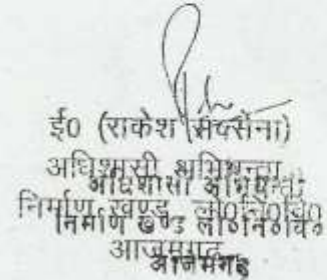 ई0 (राकेश सक्सेना)
अधिशासी अभियन्ता
अधिशासी अभियन्ता
निर्माण खण्ड, लो0नि0वि0
निर्माण खण्ड लो०नि०वि०
आजमगढ़
आजमगढ़